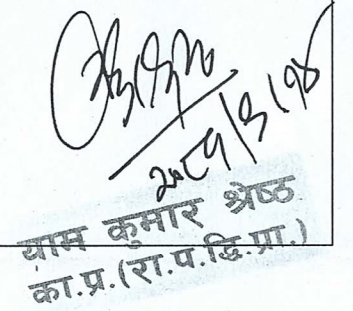 २०८१/३/१४
याम कुमार श्रेष्ठ
का.प्र.(रा.प.द्वि.प्रा.)